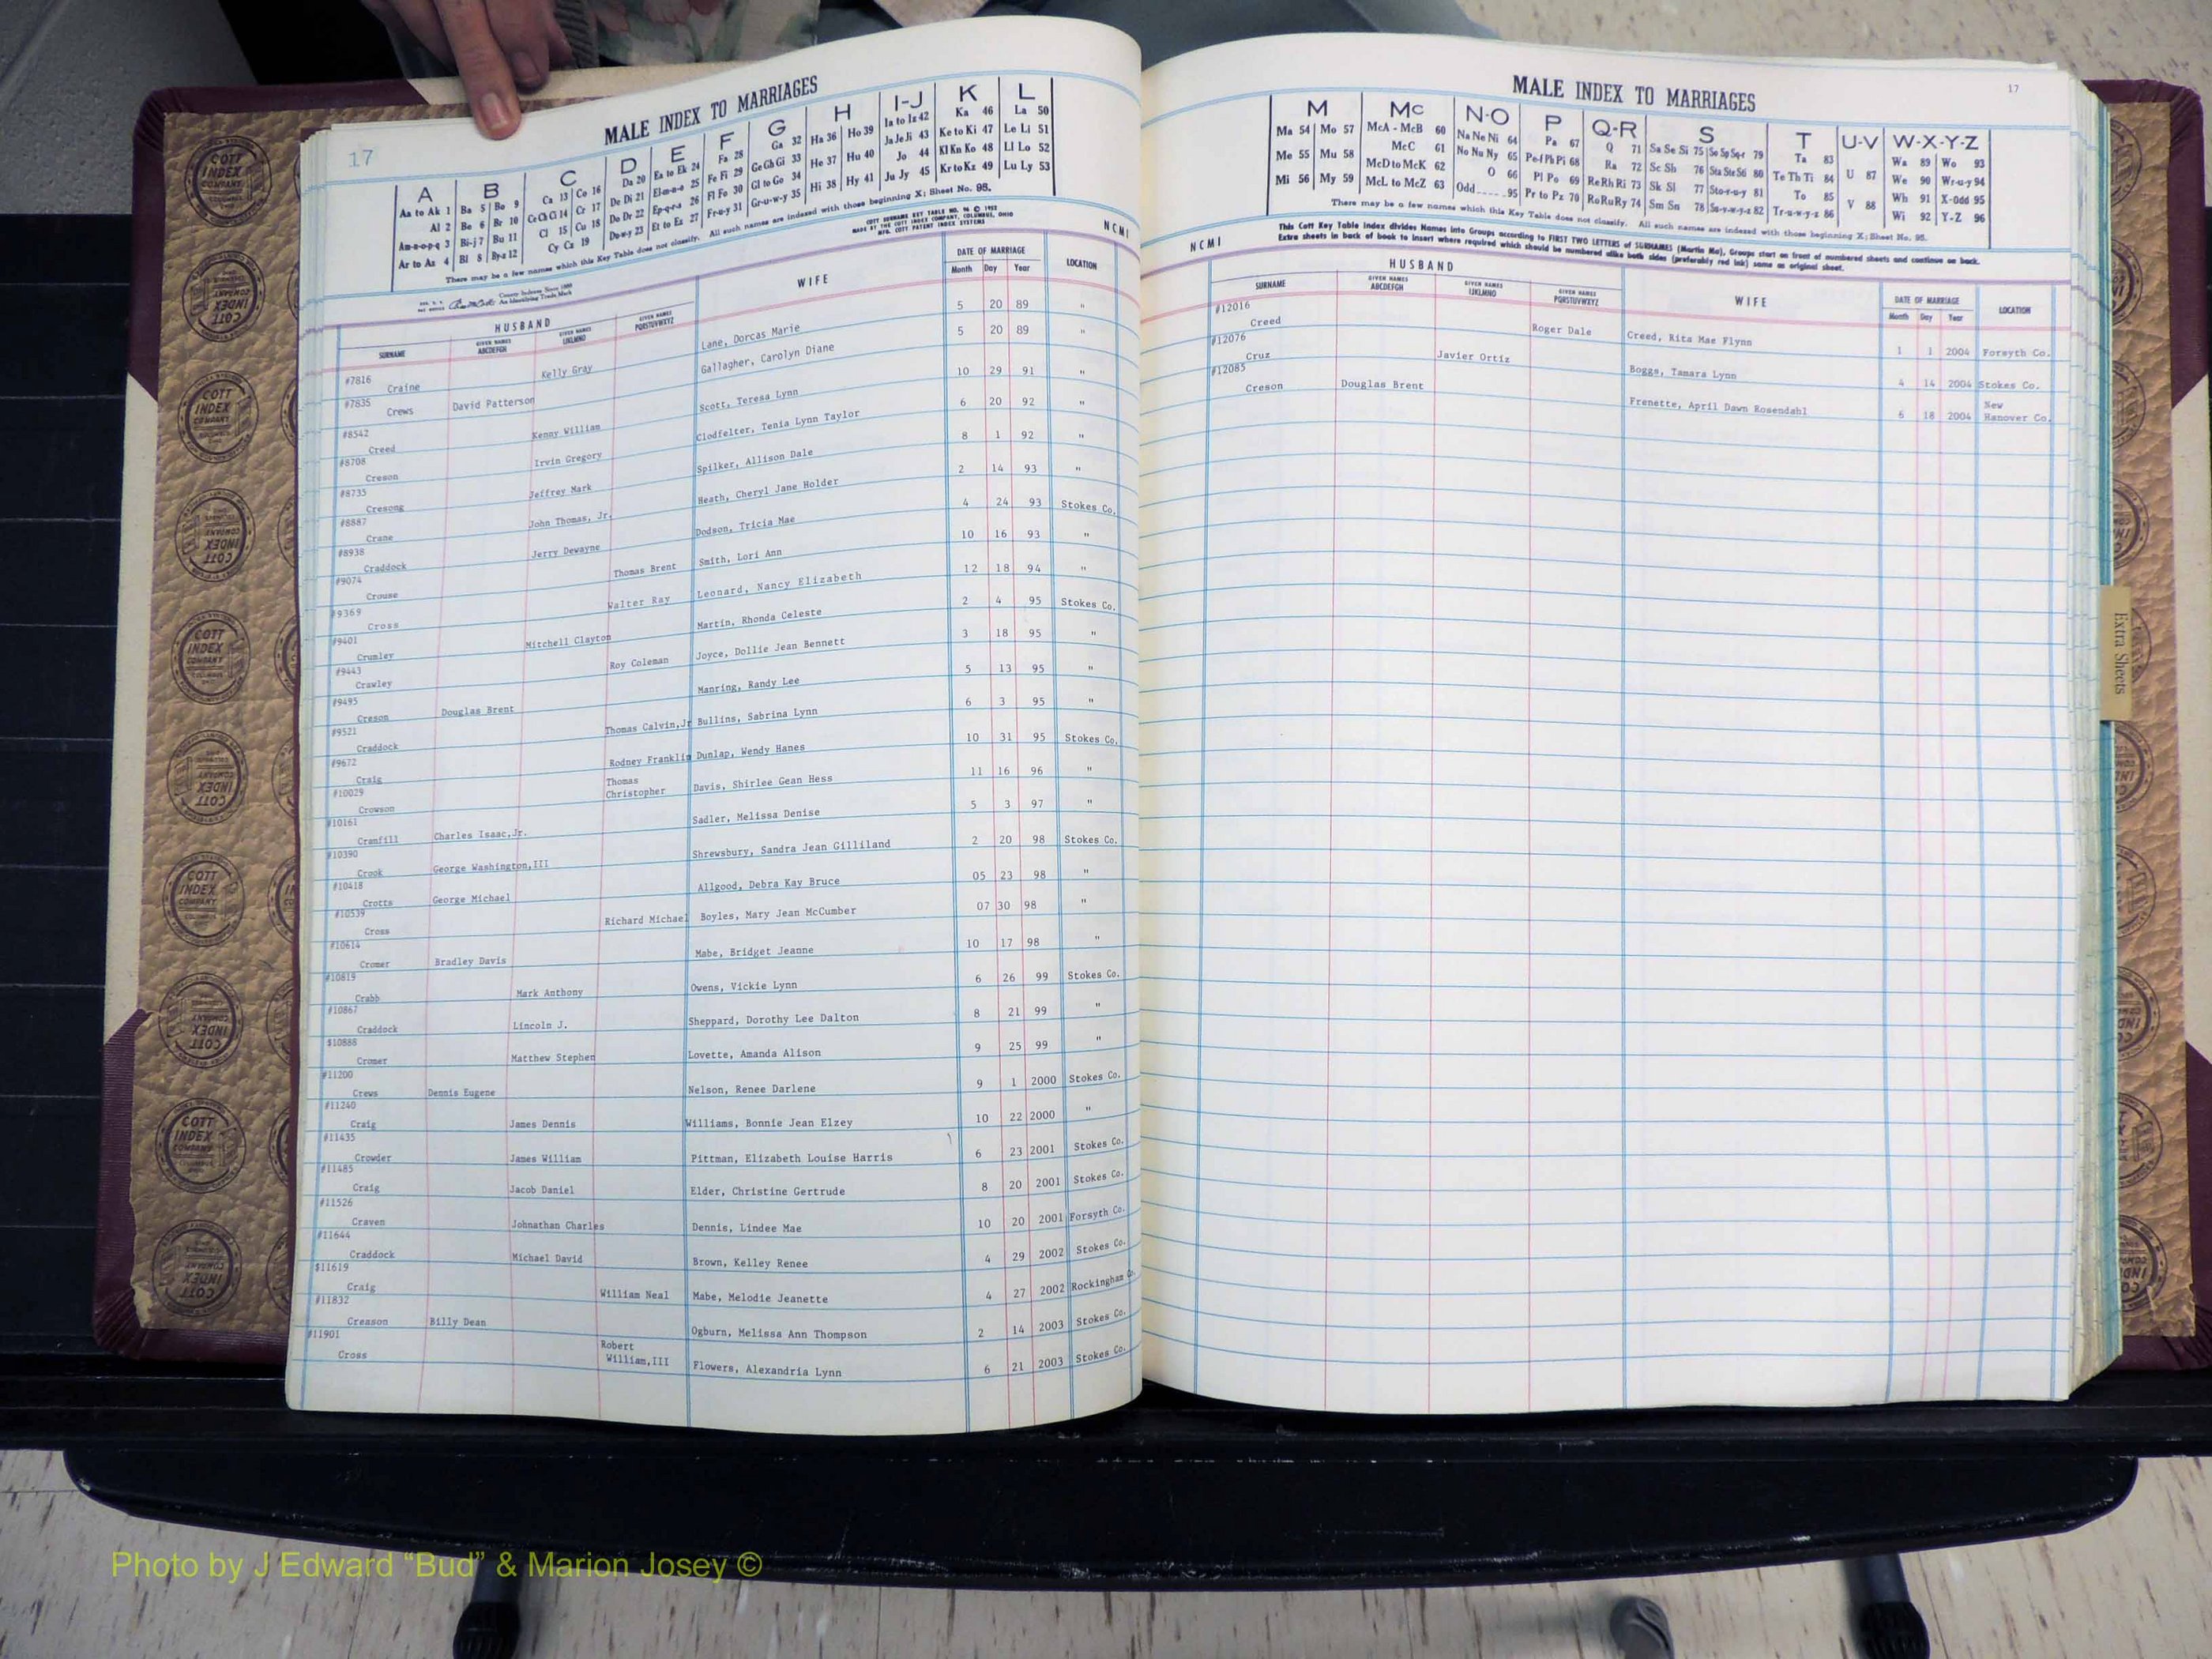 17
MALE INDEX TO MARRIAGES
A B C D E F G H I-J K L
Aa to Ak 1 Ba 5 Bo 9 Ca 13 Co 16 Da 20 Ea to Ek 24 Fa 28 Ga 32 Ha 36 Ho 39 Ia to Iz 42 Ka 46 La 50
Al 2 Be 6 Br 10 Ce Ch Ci 14 Cr 17 De Di 21 El-m-n-o 25 Fe Fi 29 Ge Gh Gi 33 He 37 Hu 40 Ja Je Ji 43 Ke to Ki 47 Le Li 51
Am-n-o-p-q 3 Bi-j 7 Bu 11 Cl 15 Cu 18 Do Dr 22 Ep-q-r-s 26 Fl Fo 30 Gl to Go 34 Hi 38 Hy 41 Jo 44 Kl Kn Ko 48 Ll Lo 52
Ar to Az 4 Bl 8 By-z 12 Cy Cz 19 Du-w-y 23 Et to Ez 27 Fr-u-y 31 Gr-u-w-y 35 Ju Jy 45 Kr to Kz 49 Lu Ly 53
There may be a few names which this Key Table does not classify. All such names are indexed with those beginning X; Sheet No. 95.
COTT SURNAME KEY TABLE NO. 96 © 1952
MADE BY THE COTT INDEX COMPANY, COLUMBUS, OHIO
MFG. COTT PATENT INDEX SYSTEMS
NCMI
County Indexes Since 1888
An Identifying Trade Mark
HUSBAND WIFE DATE OF MARRIAGE LOCATION
SURNAME GIVEN NAMES ABCDEFGH GIVEN NAMES IJKLMNO GIVEN NAMES PQRSTUVWXYZ Month Day Year
#7816 Craine Kelly Gray Lane, Dorcas Marie 5 20 89 "
#7835 Crews David Patterson Gallagher, Carolyn Diane 5 20 89 "
#8542 Creed Kenny William Scott, Teresa Lynn 10 29 91 "
#8708 Creson Irvin Gregory Clodfelter, Tenia Lynn Taylor 6 20 92 "
#8735 Cresong Jeffrey Mark Spilker, Allison Dale 8 1 92 "
#8887 Crane John Thomas, Jr. Heath, Cheryl Jane Holder 2 14 93 "
#8938 Craddock Jerry Dewayne Dodson, Tricia Mae 4 24 93 Stokes Co.
#9074 Crouse Thomas Brent Smith, Lori Ann 10 16 93 "
#9369 Cross Walter Ray Leonard, Nancy Elizabeth 12 18 94 "
#9401 Crumley Mitchell Clayton Martin, Rhonda Celeste 2 4 95 Stokes Co.
#9443 Crawley Roy Coleman Joyce, Dollie Jean Bennett 3 18 95 "
#9495 Creson Douglas Brent Manring, Randy Lee 5 13 95 "
#9521 Craddock Thomas Calvin,Jr Bullins, Sabrina Lynn 6 3 95 "
#9672 Craig Rodney Franklin Dunlap, Wendy Hanes 10 31 95 Stokes Co.
#10029 Crowson Thomas Christopher Davis, Shirlee Gean Hess 11 16 96 "
#10161 Cranfill Charles Isaac,Jr. Sadler, Melissa Denise 5 3 97 "
#10390 Crook George Washington,III Shrewsbury, Sandra Jean Gilliland 2 20 98 Stokes Co.
#10418 Crotts George Michael Allgood, Debra Kay Bruce 05 23 98 "
#10539 Cross Richard Michael Boyles, Mary Jean McCumber 07 30 98 "
#10614 Cromer Bradley Davis Mabe, Bridget Jeanne 10 17 98 "
#10819 Crabb Mark Anthony Owens, Vickie Lynn 6 26 99 Stokes Co.
#10867 Craddock Lincoln J. Sheppard, Dorothy Lee Dalton 8 21 99 "
$10888 Cromer Matthew Stephen Lovette, Amanda Alison 9 25 99 "
#11200 Crews Dennis Eugene Nelson, Renee Darlene 9 1 2000 Stokes Co.
#11240 Craig James Dennis Williams, Bonnie Jean Elzey 10 22 2000 "
#11435 Crowder James William Pittman, Elizabeth Louise Harris 6 23 2001 Stokes Co.
#11485 Craig Jacob Daniel Elder, Christine Gertrude 8 20 2001 Stokes Co.
#11526 Craven Johnathan Charles Dennis, Lindee Mae 10 20 2001 Forsyth Co.
#11644 Craddock Michael David Brown, Kelley Renee 4 29 2002 Stokes Co.
$11619 Craig William Neal Mabe, Melodie Jeanette 4 27 2002 Rockingham Co.
#11832 Creason Billy Dean Ogburn, Melissa Ann Thompson 2 14 2003 Stokes Co.
#11901 Cross Robert William,III Flowers, Alexandria Lynn 6 21 2003 Stokes Co.
17
MALE INDEX TO MARRIAGES
M Mc N-O P Q-R S T U-V W-X-Y-Z
Ma 54 Mo 57 McA - McB 60 Na Ne Ni 64 Pa 67 Q 71 Sa Se Si 75 So Sp Sq-r 79 Ta 83 U 87 Wa 89 Wo 93
Me 55 Mu 58 McC 61 No Nu Ny 65 Pe-f Ph Pi 68 Ra 72 Sc Sh 76 Sta Ste Sti 80 Te Th Ti 84 We 90 Wr-u-y 94
McD to McK 62 O 66 Pl Po 69 Re Rh Ri 73 Sk Sl 77 Sto-r-u-y 81 To 85 V 88 Wh 91 X-Odd 95
Mi 56 My 59 McL to McZ 63 Odd 95 Pr to Pz 70 Ro Ru Ry 74 Sm Sn 78 Su-v-w-y-z 82 Tr-u-w-y-z 86 Wi 92 Y-Z 96
There may be a few names which this Key Table does not classify. All such names are indexed with those beginning X; Sheet No. 95.
This Cott Key Table Index divides Names into Groups according to FIRST TWO LETTERS of SURNAMES (Martin Ma), Groups start on front of numbered sheets and continue on back.
Extra sheets in back of book to insert where required which should be numbered alike both sides (preferably red ink) same as original sheet.
NCMI
HUSBAND WIFE DATE OF MARRIAGE LOCATION
SURNAME GIVEN NAMES ABCDEFGH GIVEN NAMES IJKLMNO GIVEN NAMES PQRSTUVWXYZ Month Day Year
#12016 Creed Roger Dale Creed, Rita Mae Flynn 1 1 2004 Forsyth Co.
#12076 Cruz Javier Ortiz Boggs, Tamara Lynn 4 14 2004 Stokes Co.
#12085 Creson Douglas Brent Frenette, April Dawn Rosendahl 6 18 2004 New Hanover Co.
Extra Sheets
COTT INDEX COMPANY
Photo by J Edward “Bud” & Marion Josey ©